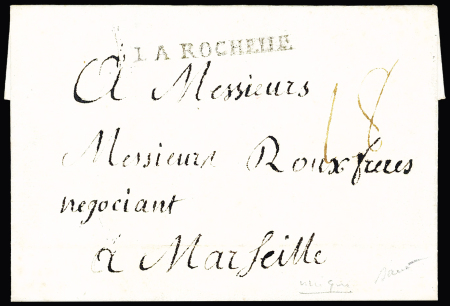 LA ROCHELLE
A Messieurs
18
Messieurs Roux freres
negociant
à Marseille